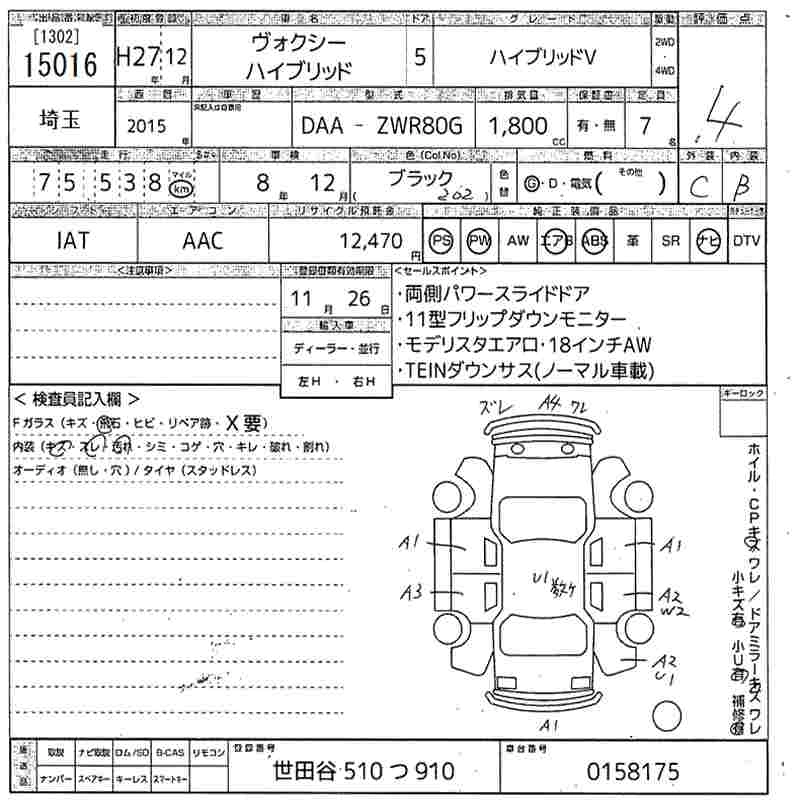 出品番号 初度登録 車名 ドア グレード 駆動 評価点
[1302]
15016
H27年 12月
ヴォクシー
ハイブリッド
5
ハイブリッドV
2WD
・
4WD
4
埼玉
車歴 型式 排気量 保証書 定員
2015年
DAA - ZWR80G
1,800cc
有・無
7名
走行 車検 色(Col No) 色替 燃料 その他 外装 内装
7 5 5 3 8 マイル km
8年 12月
ブラック
(202)
G・D・電気( )
C
B
シフト エアコン リサイクル預託金 純正装備品
IAT
AAC
12,470円
PS PW AW エアB ABS 革 SR ナビ DTV
<注意事項>
11月 26日
輸入車
ディーラー・並行
左H ・ 右H
<セールスポイント>
・両側パワースライドドア
・11型フリップダウンモニター
・モデリスタエアロ・18インチAW
・TEINダウンサス(ノーマル車載)
キーロック
< 検査員記入欄 >
Fガラス (キズ・飛石・ヒビ・リペア跡・X要)
内装 (キズ・スレ・汚れ・シミ・コゲ・穴・キレ・破れ・割れ)
オーディオ (無し・穴) / タイヤ (スタッドレス)
ズレ A4 ワレ
A1 A1
A3 U1 数ケ A2
W2
A2
U1
A1
ホイル・CPキズワレ/ドアミラーキズワレ
小キズ有 小U有 補修有
後送品
取説 ナビ取説 ロム/SD B-CAS リモコン
ナンバー スペアキー キーレス スマートキー
登録番号
世田谷 510 つ 910
車台番号
0158175